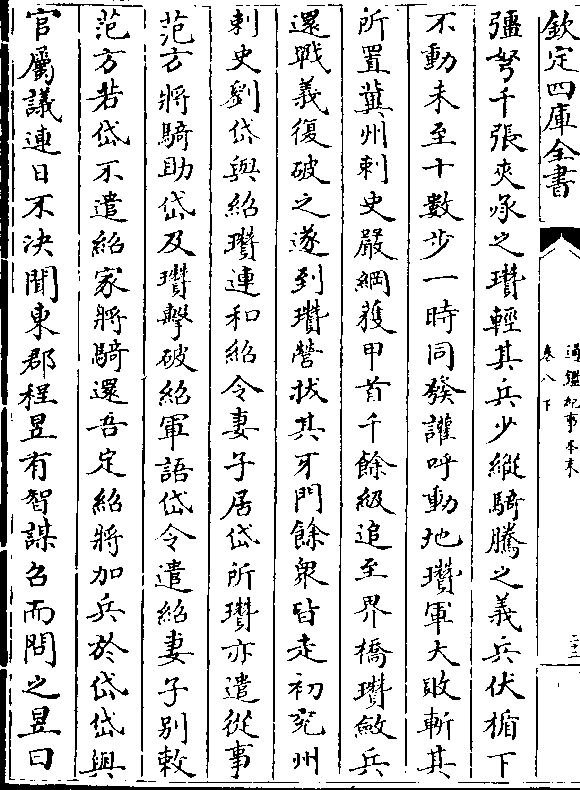 欽定四庫全書
通鑑紀事本末
卷八下
二十二
彊弩千張夾承之瓚輕其兵少縱騎騰之義兵伏楯下
不動未至十數步一時同發讙呼動地瓚軍大敗斬其
所置冀州刺史嚴綱獲甲首千餘級追至界橋瓚斂兵
還戰義復破之遂到瓚營拔其牙門餘衆皆走初兖州
刺史劉岱與紹瓚連和紹令妻子居岱所瓚亦遣從事
范方將騎助岱及瓚擊破紹軍語岱令遣紹妻子别敕
范方若岱不遣紹家將騎還吾定紹將加兵於岱岱與
官屬議連日不決聞東郡程昱有智謀召而問之昱曰